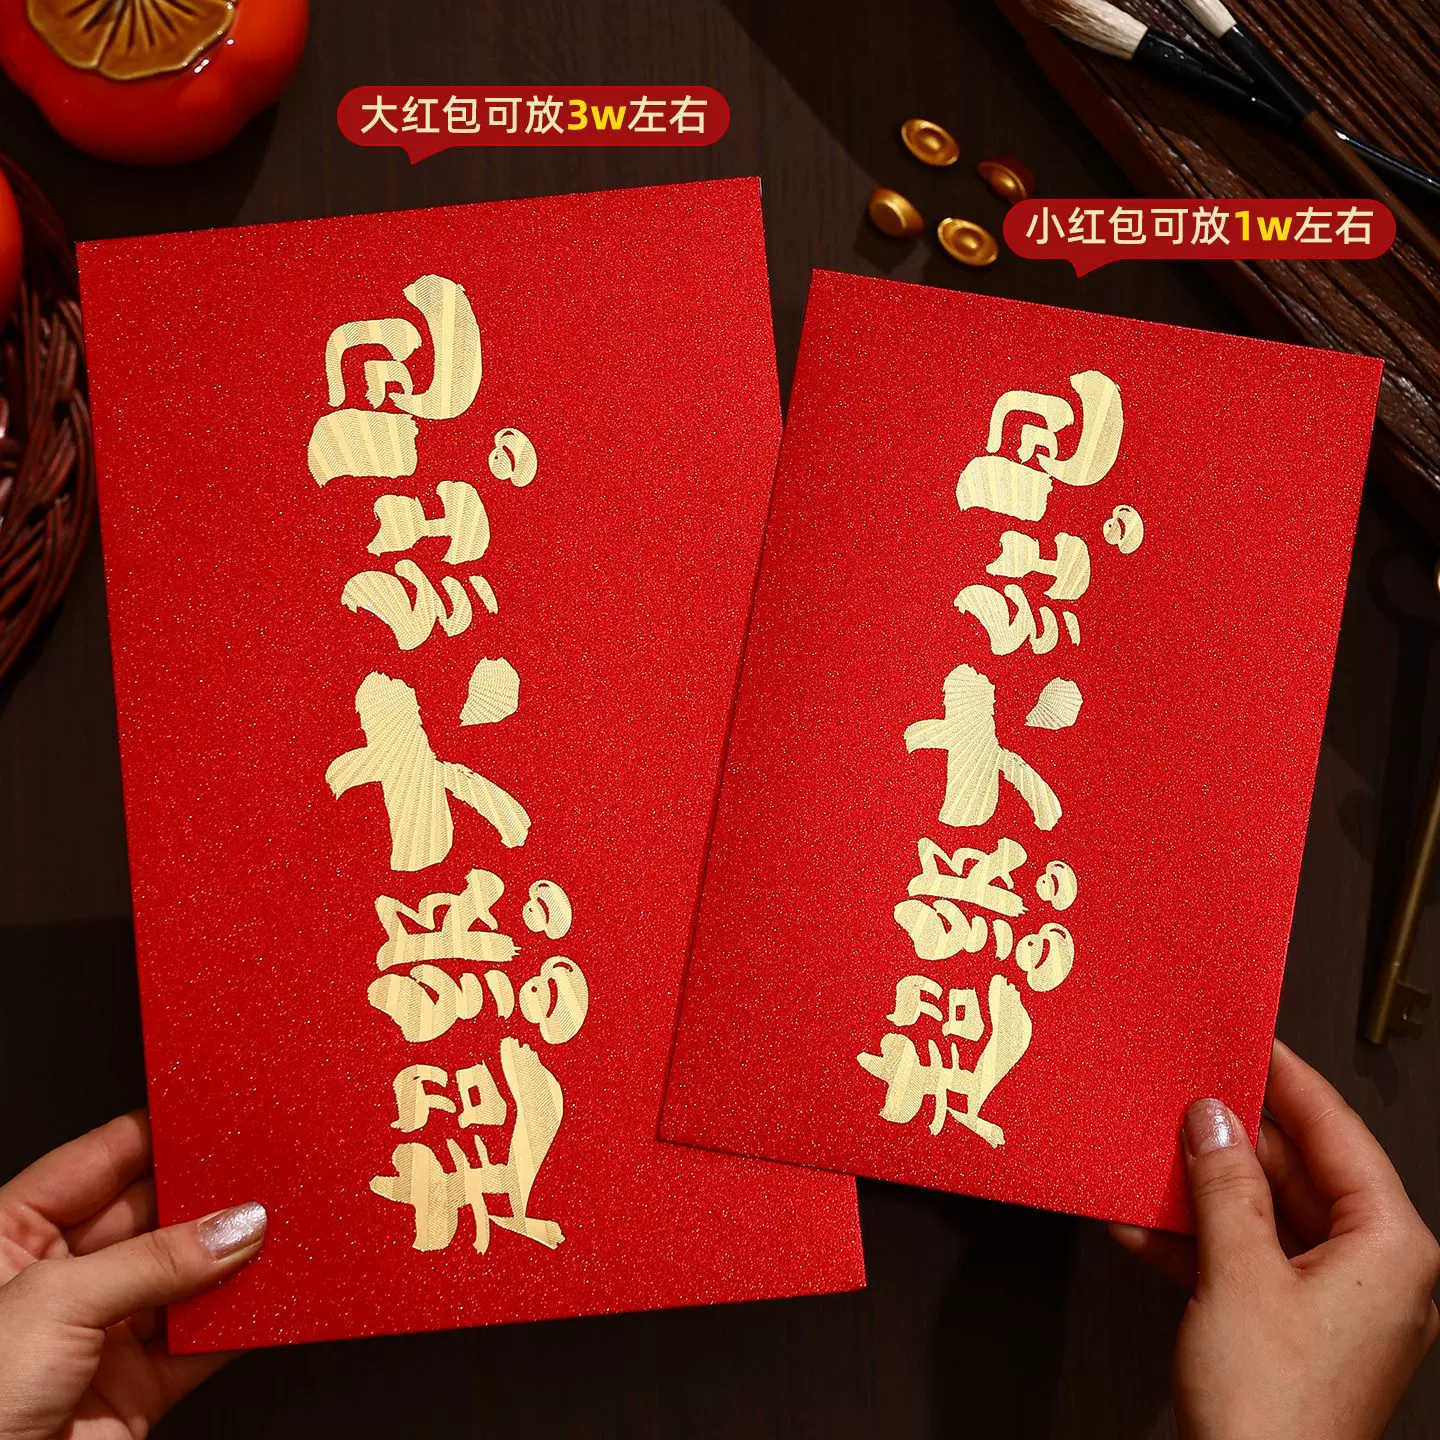 大红包可放3w左右
小红包可放1w左右
超级大红包
超级大红包